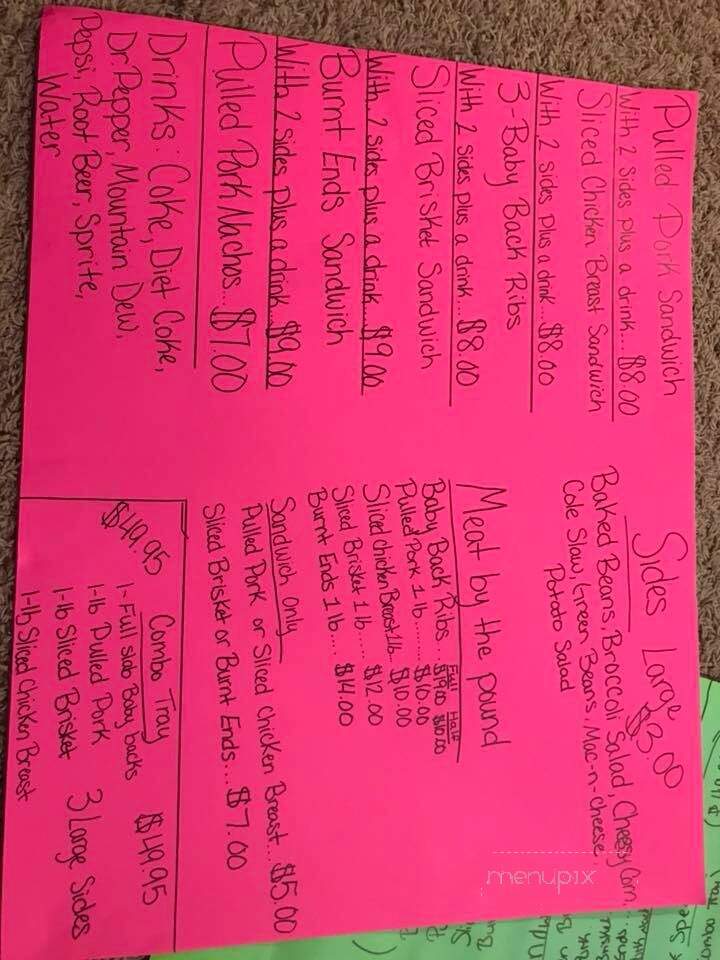 Pulled Pork Sandwich
With 2 Sides plus a drink... $8.00
Sliced Chicken Breast Sandwich
With 2 sides plus a drink... $8.00
3-Baby Back Ribs
With 2 sides plus a drink... $8.00
Sliced Brisket Sandwich
With 2 sides plus a drink. $9.00
Burnt Ends Sandwich
With 2 sides plus a drink... $9.00
Pulled Pork Nachos... $7.00
Drinks: Coke, Diet Coke,
Dr. Pepper, Mountain Dew,
Pepsi, Root Beer, Sprite,
Water
Sides Large
$3.00
Baked Beans, Broccoli Salad, Cheesy Corn,
Cole Slaw, Green Beans, Mac-n-Cheese
Potato Salad
Meat by the pound
Full Half
Baby Back Ribs.. $19.00 $10.00
Pulled Pork 1 lb...... $10.00
Sliced Chicken Breast 1 lb... $10.00
Sliced Brisket 1 lb...... $12.00
Burnt Ends 1 lb..... $14.00
Sandwich Only
Pulled Pork or Sliced Chicken Breast... $5.00
Sliced Brisket or Burnt Ends... $7.00
$49.95 Combo Tray $49.95
1-Full Slab Baby backs
1-lb Pulled Pork
1-lb Sliced Brisket 3 Large Sides
1-lb Sliced Chicken Breast
menupix